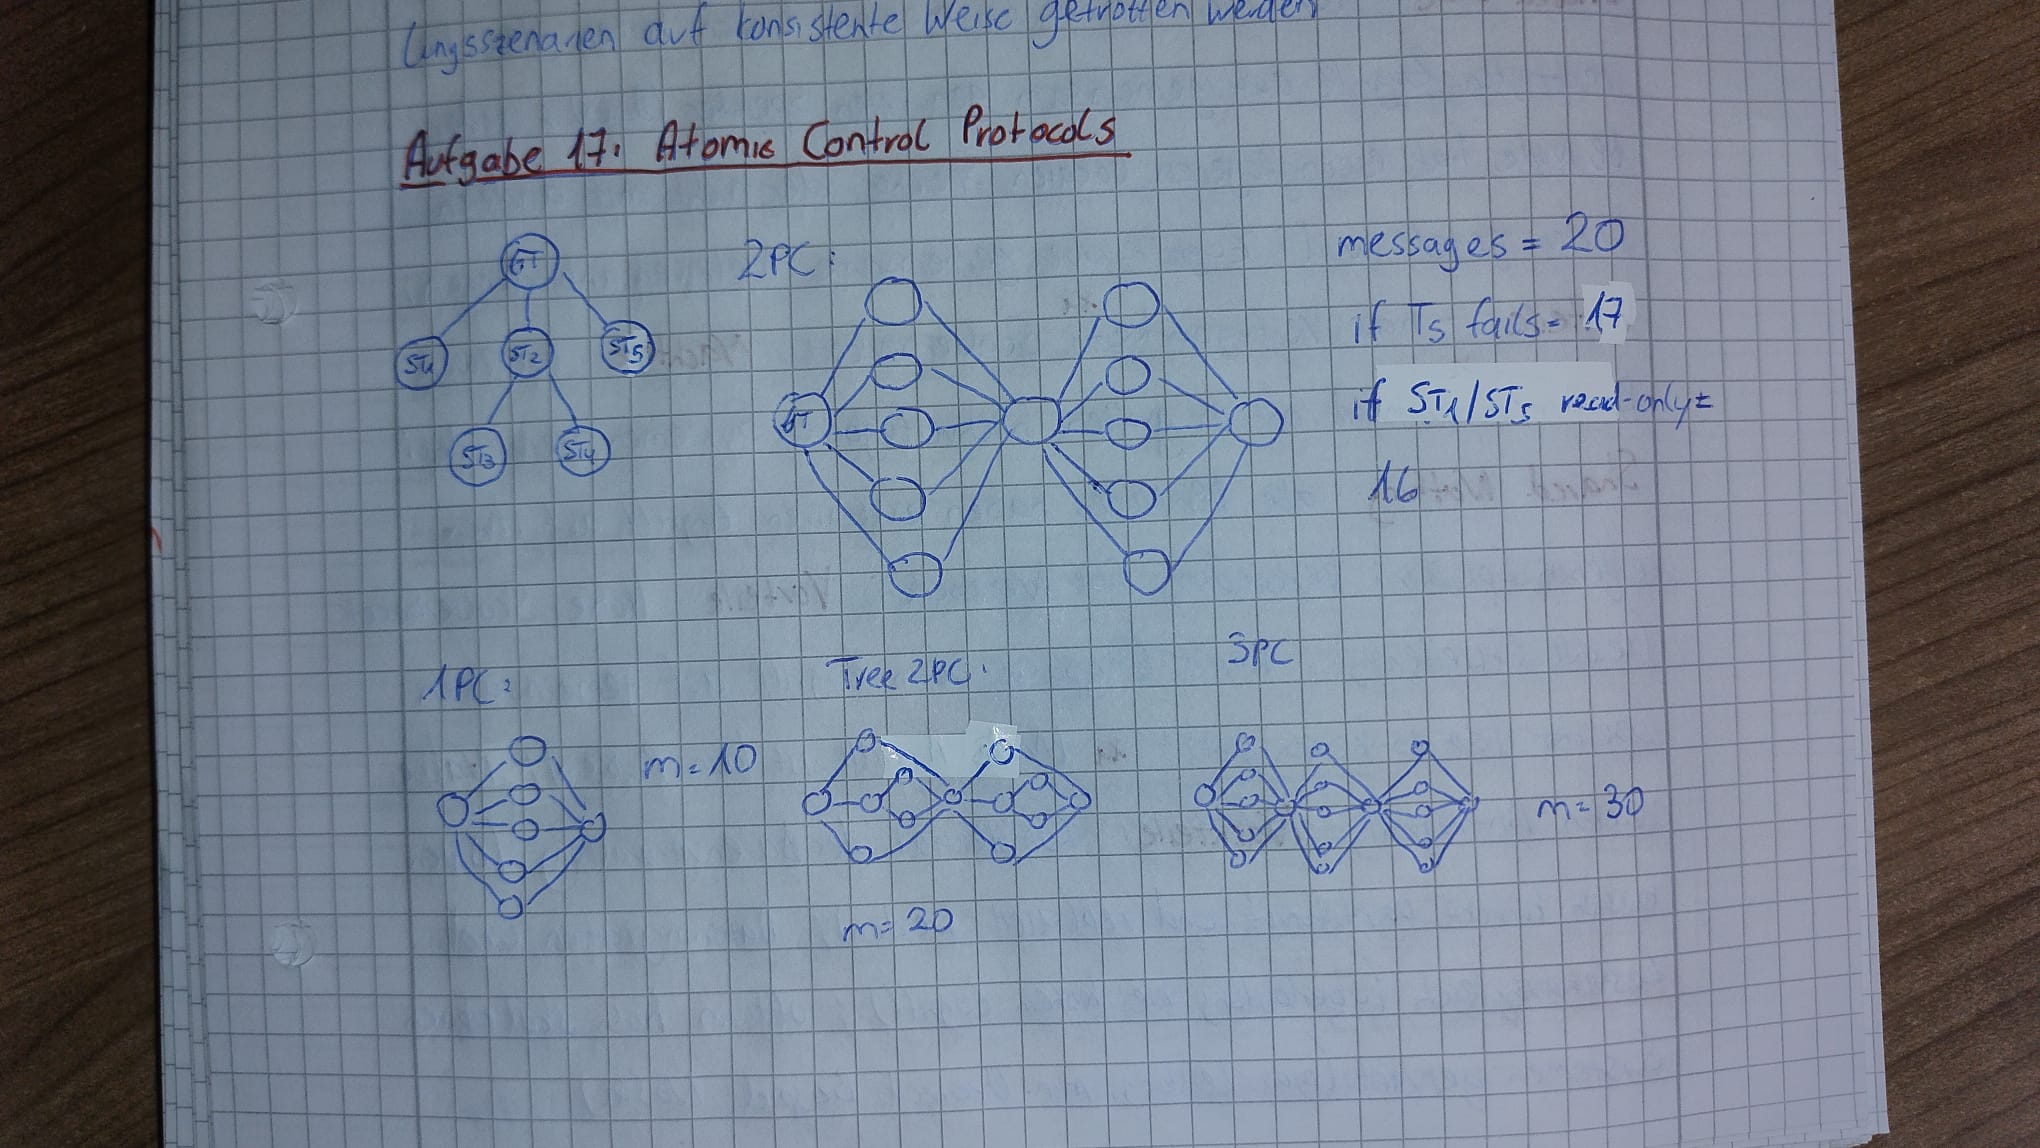 lungsszenarien auf konsistente Weise getroffen werden
Aufgabe 17: Atomic Control Protocols
GT
ST1
ST2
ST5
ST3
ST4
2PC:
GT
messages = 20
if T5 fails = 17
if ST1/ST5 read-only =
16
1PC:
m=10
Tree 2PC:
m=20
3PC
m=30